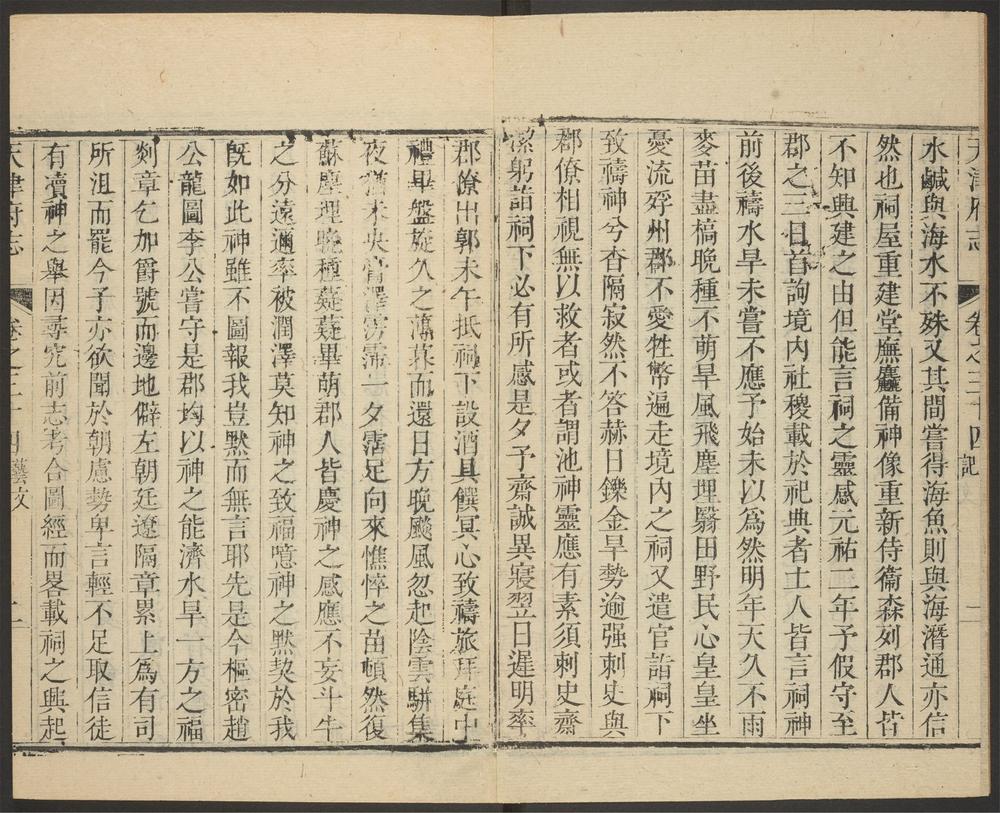 天津府志
卷之三十四記
一
水鹹與海水不殊又其間嘗得海魚則與海潛通亦信
然也祠屋重建堂廡麤備神像重新侍衞森列郡人皆
不知興建之由但能言祠之靈感元祐二年予假守至
郡之三日首詢境內社稷載於祀典者士人皆言祠神
前後禱水旱未嘗不應予始未以爲然明年天久不雨
麥苗盡槁晚種不萌旱風飛塵埋翳田野民心皇皇坐
憂流殍州郡不愛牲幣遍走境內之祠又遣官詣祠下
致禱神兮杳隔寂然不答赫日鑠金旱勢逾强刺史與
郡僚相視無以救者或者謂池神靈應有素須刺史齋
潔躬詣祠下必有所感是夕予齋誠異寢翌日遲明率
郡僚出郭未午抵祠下設酒具饌冥心致禱旅拜庭中
禮畢盤旋久之薄暮而還日方晚飈風忽起陰雲駢集
夜猶未央霶澤霶霈一夕霑足向來憔悴之苗頓然復
蘇塵理晚種蕤蕤畢萌郡人皆慶神之感應不妄斗牛
之分遠邇率被潤澤莫知神之致福噫神之黙契於我
旣如此神雖不圖報我豈黙而無言耶先是今樞密趙
公龍圖李公嘗守是郡均以神之能濟水旱一方之福
剡章乞加爵號而邊地僻左朝廷遼隔章累上爲有司
所沮而罷今予亦欲聞於朝慮勢卑言輕不足取信徒
有瀆神之舉因尋究前志考合圖經而畧載祠之興起
天津府志
卷之三十四藝文
二